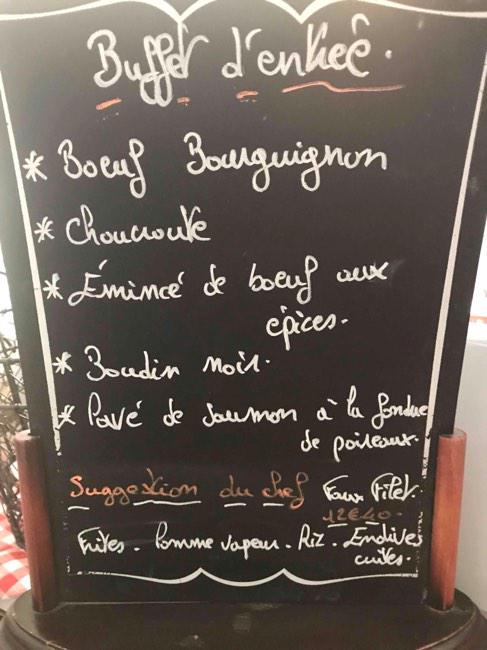 Buffet d'entrée.
* Boeuf Bourguignon
* Choucroute
* Émincé de boeuf aux
épices.
* Boudin noir.
* Pavé de saumon à la fondue
de poireaux.
Suggestion du chef Faux Filet.
12€40.
Frites. Pomme vapeur. Riz. Endives
cuites.